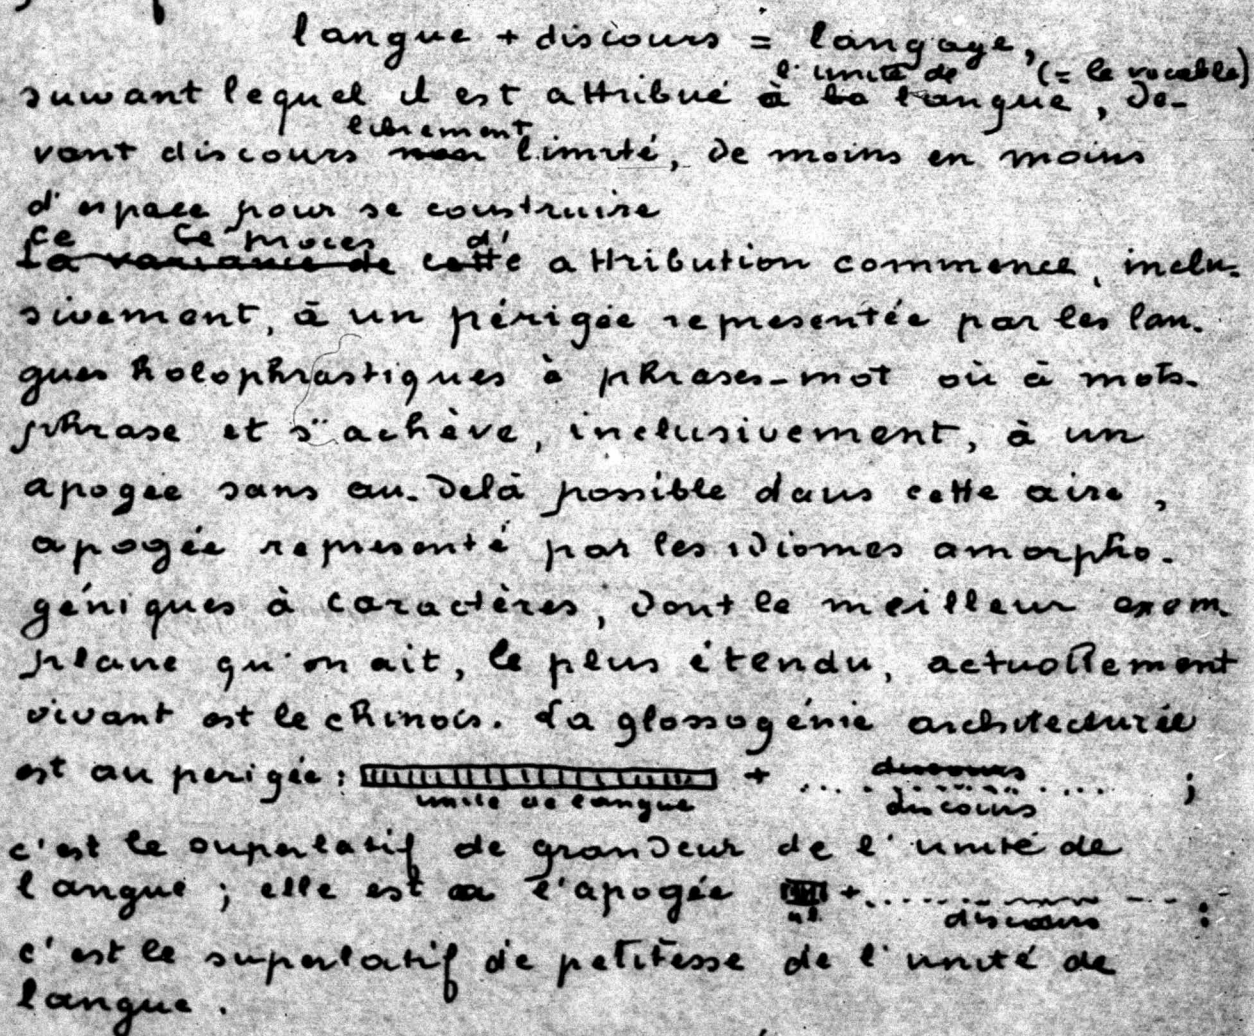 langue + discours = langage,
l'unité de (= le vocable)
suivant lequel il est attribué à la langue, de-
librement
vant discours non limité, de moins en moins
d'espace pour se construire
Ce Ce procès d'
La variance de cette attribution commence, inclu-
sivement, à un périgée representée par les lan-
gues holophrastiques à phrases-mot où à mots-
phrase et s'achève, inclusivement, à un
apogée sans au-delà possible dans cette aire,
apogée representé par les idiomes amorpho-
géniques à caractères, dont le meilleur exem-
plaire qu'on ait, le plus étendu, actuellement
vivant est le chinois. La glossogénie architecturée
est au perigée : + discours ;
unité de langue discours
c'est le superlatif de grandeur de l'unité de
langue ; elle est a l'apogée + :
discours
c'est le superlatif de petitesse de l'unité de
langue.